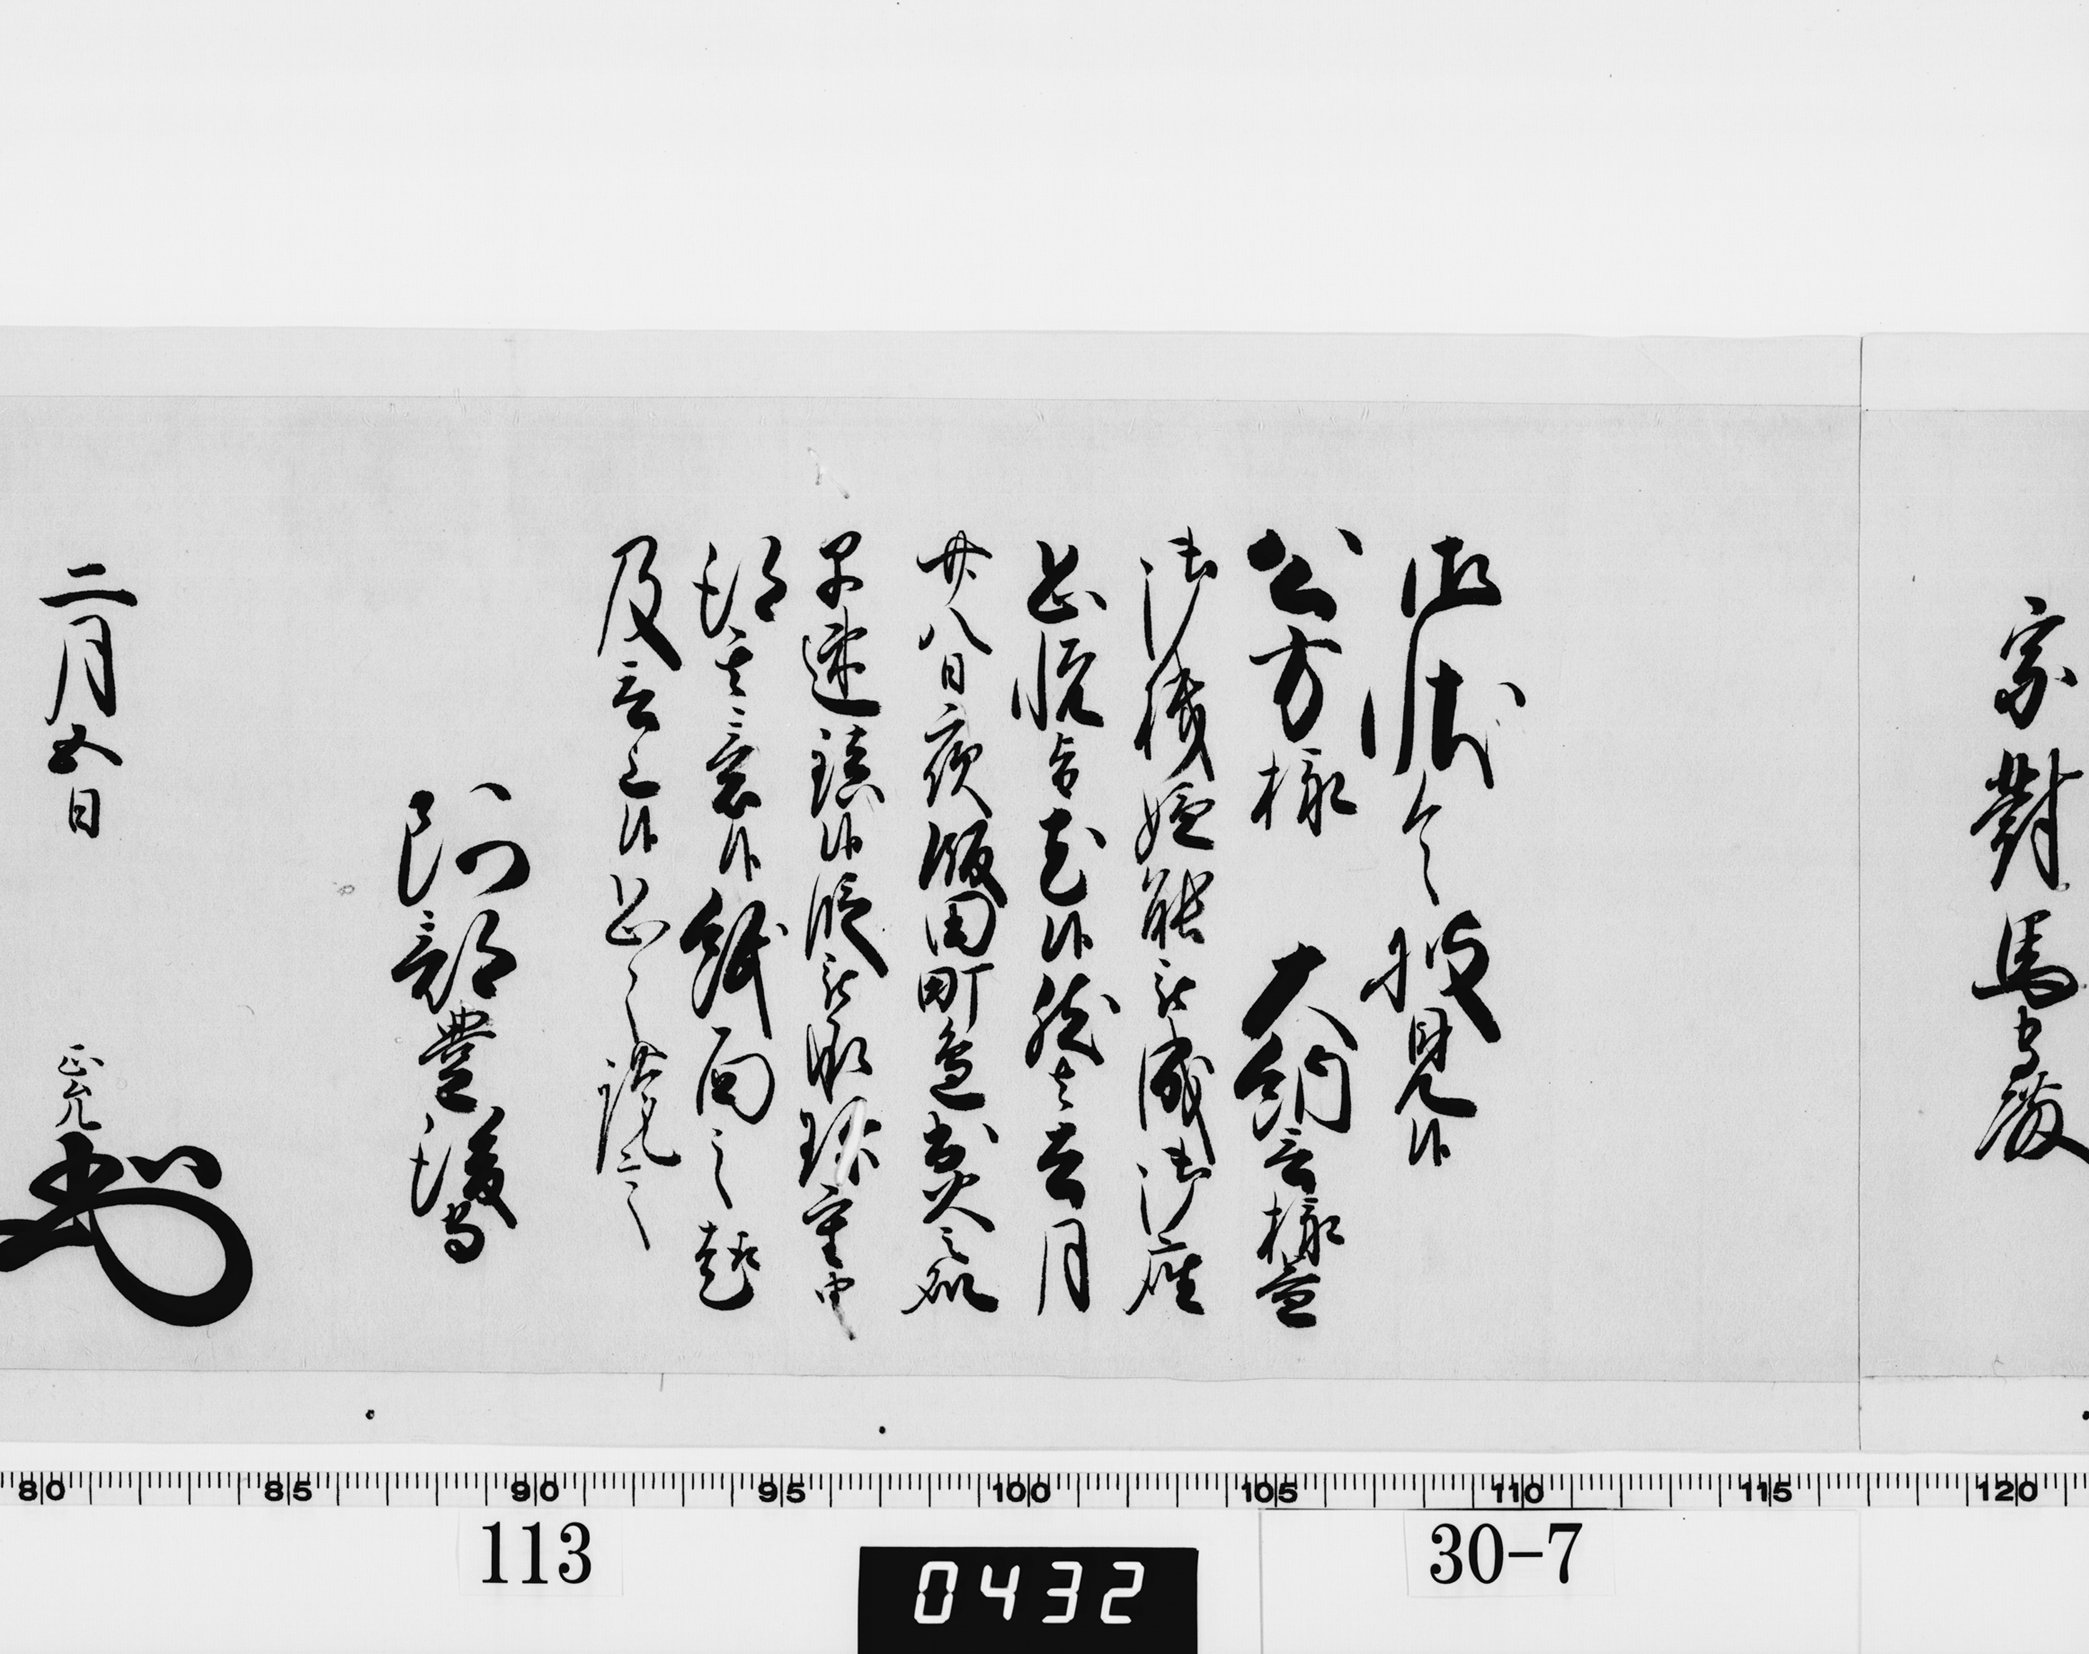 宗對馬守殿
御状令披見候
公方様　大納言様益
御機嫌能被成御座
恐悦旨尤候然者去月
廿八日夜飯田町邊出火之砌
早速鎮候段被承珎重由
得其意候紙面之趣
及言上候恐々謹言
阿部豊後守
二月五日
正允
80 85 90 95 100 105 110 115 120
113
0432
30-7